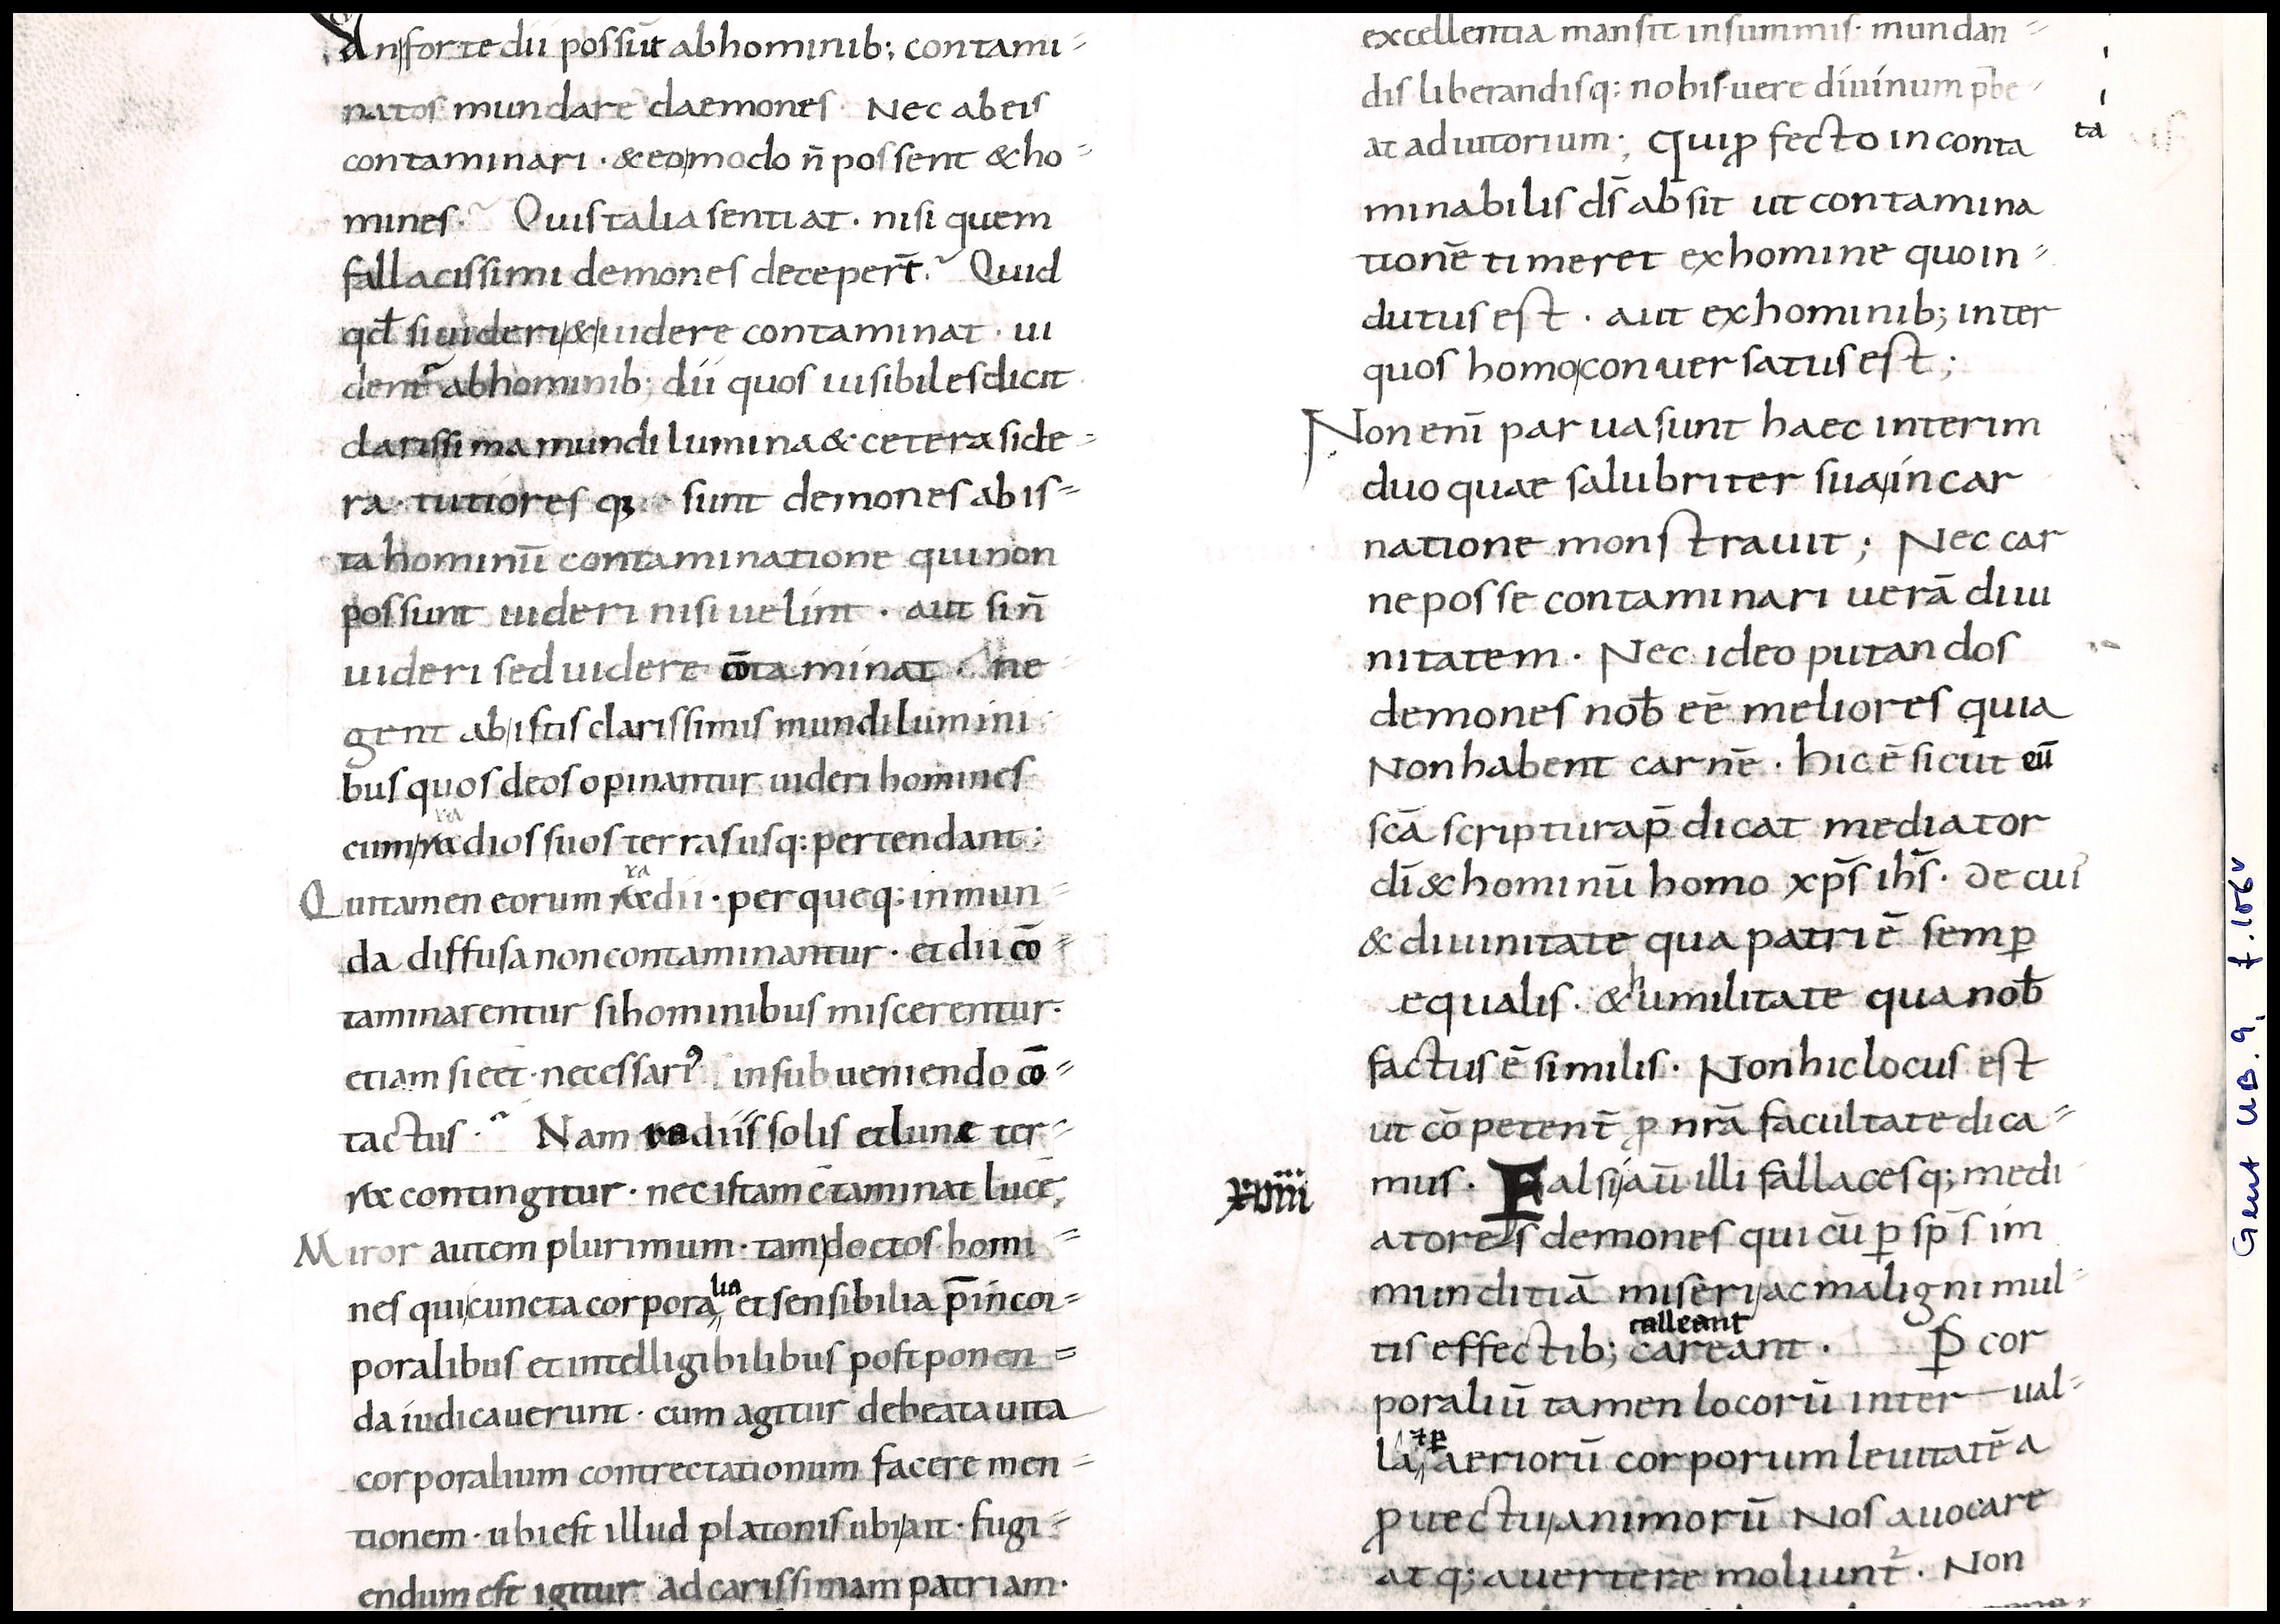 an forte dii possūt abhominib; contami=
natos mundare daemones. Nec ab eis
contaminari · & eo modo n̄ possent & ho=
mines. Quis talia sentiat · nisi quem
fallacissimi demones deceper̄t. Quid
qđ si uideri & uidere contaminat · ui
dent᷑ abhominib; dii quos uisibiles dicit
clarissima mundi lumina & cetera side=
ra · tutiores q; sunt demones ab is=
ta hominū contaminatione qui non
possunt uideri nisi uelint · aut si n̄
uideri sed uidere cōtaminat · ne
gent ab istis clarissimis mundi lumini
bus quos deos opinantur uideri homines
cum radios suos terras usq: pertendant:
Qui tamen eorum radii · per queq: inmun=
da diffusa non contaminantur · et dii cō=
taminarentur si hominibus miscerentur.
etiam si eēt necessari⁹ in subueniendo cō=
tactus. Nam radiis solis et lunae ter=
rae contingitur · nec istam c̄taminat lucē;
Miror autem plurimum · tam doctos homi=
nes qui cuncta corporalia et sensibilia p̄ incor=
poralibus et intelligibilibus postponen=
da iudicauerunt · cum agitur de beata uita
corporalium contrectationum facere men=
tionem · ubi est illud platonis ubi ait · fugi=
endum est igitur ad carissimam patriam.
excellentia mansit in summis · mundan=
dis liberandisq: nobis uere diuinum p̄be
at adiutorium; Qui ꝓfecto inconta
ta
minabilis ds̄ absit ut contamina
tionē timeret ex homine quo in=
dutus est · aut ex hominib; inter
quos homo conuersatus est;
Non eni̅ parua sunt haec interim
duo quae salubriter sua incar
natione monstrauit; Nec car
ne posse contaminari uerā diui
nitatem · Nec ideo putandos
demones nob̄ eē meliores quia
Non habent carnē · hic ē sicut eū
scā scriptura p̄dicat mediator
dī & hominū homo xp̄s ihs̄ · de cui᷒
& diuinitate qua patri ē semꝑ
equalis · & humilitate qua nob̄
factus ē similis · Non hic locus est
ut cōpetent̄ ꝓ nrā facultate dica=
xviiii
mus · Falsi aū illi fallacesq; medi
atores demones qui cū ꝑ sp̄s im
munditiā miseri ac maligni mul=
calleant
tis effectib; careant · Ꝑ cor
poraliū tamen locorū inter ual=
la & ꝑ aeriorū corporum leuitatē a
ꝓuectu animorū Nos auocare
atq; auertere moliunt᷑ · Non
Gent UB. 9. f. 106v